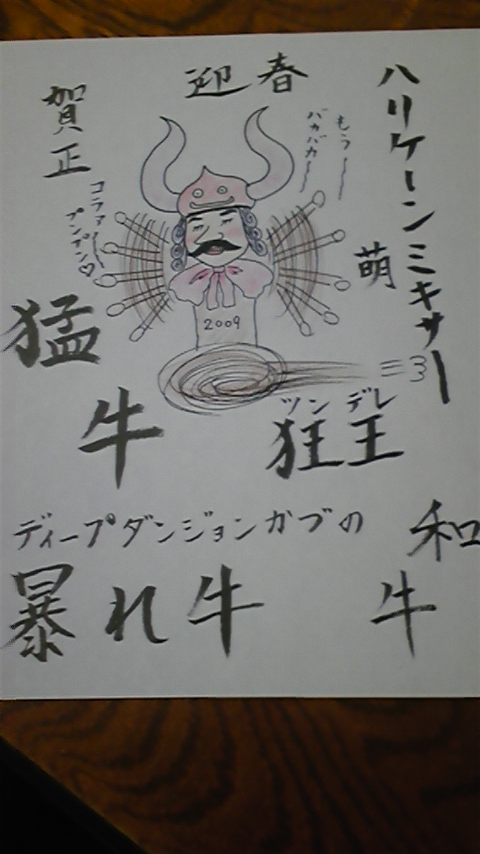 迎春
賀正
ハリケーンミキサー
萌
もう〜
バカバカ〜
コラァ〜
プンプン♡
2009
猛
牛
ツンデレ
狂王
ディープダンジョンかづの
暴れ牛
和
牛